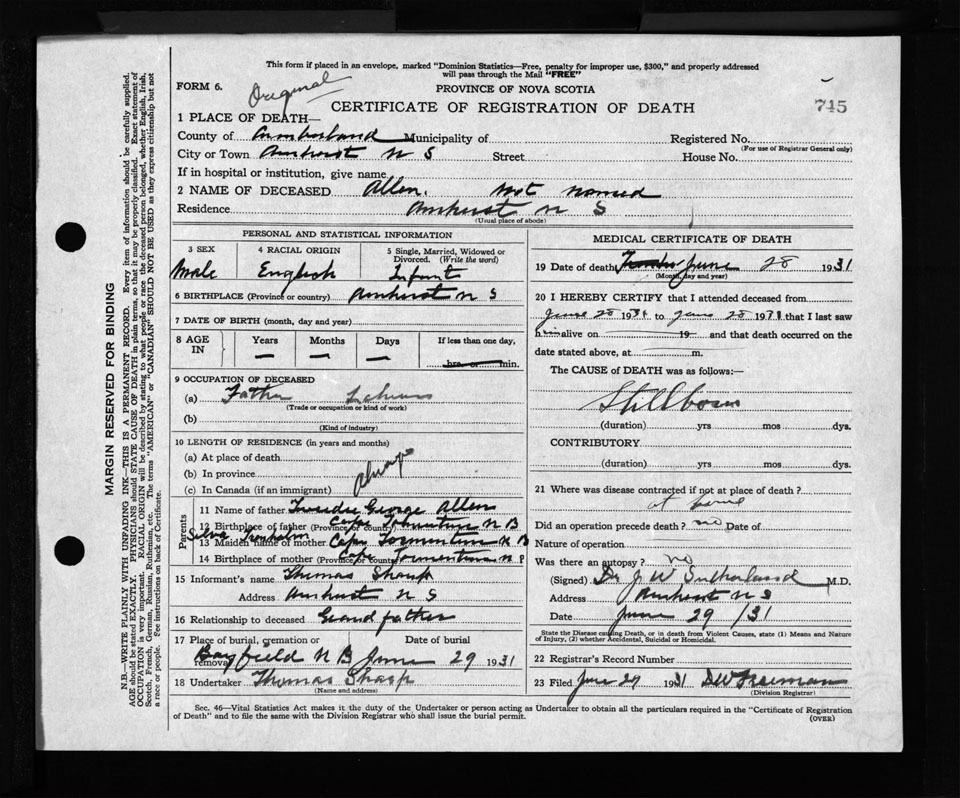 This form if placed in an envelope, marked "Dominion Statistics—Free, penalty for improper use, $300," and properly addressed
will pass through the Mail "FREE"
FORM 6.
Original
PROVINCE OF NOVA SCOTIA
745
CERTIFICATE OF REGISTRATION OF DEATH
1 PLACE OF DEATH—
County of Cumberland Municipality of Registered No.
(For use of Registrar General only)
City or Town Amherst N S Street House No.
If in hospital or institution, give name
2 NAME OF DECEASED Allen. Not Named
Residence Amherst N S
(Usual place of abode)
PERSONAL AND STATISTICAL INFORMATION
3 SEX 4 RACIAL ORIGIN 5 Single, Married, Widowed or
Divorced. (Write the word)
Male English Infant
6 BIRTHPLACE (Province or country) Amherst N S
7 DATE OF BIRTH (month, day and year)
8 AGE IN Years Months Days If less than one day,
— — — hrs. or min.
9 OCCUPATION OF DECEASED
(a) Father
(Trade or occupation or kind of work)
(b)
(Kind of industry)
10 LENGTH OF RESIDENCE (in years and months)
(a) At place of death
(b) In province
(c) In Canada (if an immigrant)
Always
Parents
11 Name of father George Allen
12 Birthplace of father (Province or country) Cape Tormentine N B
13 Maiden name of mother Silva Trenholm Cape Tormentine N B
14 Birthplace of mother (Province or country) Cape Tormentine N B
15 Informant's name Thomas Sharp
Address Amherst N S
16 Relationship to deceased Grand father
17 Place of burial, cremation or removal Date of burial
Bayfield N B June 29 1931
18 Undertaker Thomas Sharp
(Name and address)
MEDICAL CERTIFICATE OF DEATH
19 Date of death June 28 1931
(Month, day and year)
20 I HEREBY CERTIFY that I attended deceased from
June 28 1931 to June 28 1931 that I last saw
him alive on 19 and that death occurred on the
date stated above, at m.
The CAUSE of DEATH was as follows:—
Stillborn
(duration) yrs mos dys.
CONTRIBUTORY
(duration) yrs mos dys.
21 Where was disease contracted if not at place of death?
at home
Did an operation precede death? no Date of
Nature of operation
Was there an autopsy? no
(Signed) Dr J W Sutherland M.D.
Address Amherst N S
Date June 29 /31
State the Disease causing Death, or in death from Violent Causes, state (1) Means and Nature
of Injury, (2) whether Accidental, Suicidal or Homicidal.
22 Registrar's Record Number
23 Filed June 29 1931 DW Freeman
(Division Registrar)
Sec. 46—Vital Statistics Act makes it the duty of the Undertaker or person acting as Undertaker to obtain all the particulars required in the "Certificate of Registration
of Death" and to file the same with the Division Registrar who shall issue the burial permit.
(OVER)
MARGIN RESERVED FOR BINDING
N.B.—WRITE PLAINLY WITH UNFADING INK—THIS IS A PERMANENT RECORD. Every item of information should be carefully supplied.
AGE should be stated EXACTLY. PHYSICIANS should STATE CAUSE OF DEATH in plain terms, so that it may be properly classified. Exact statement of
OCCUPATION is very important. RACIAL ORIGIN will be described by stating to what people or race the deceased person belonged, whether English, Irish,
Scotch, French, German, Russian, Ruthenian, etc. The terms "AMERICAN" or "CANADIAN" SHOULD NOT BE USED as they express citizenship but not
a race or people. See instructions on back of Certificate.